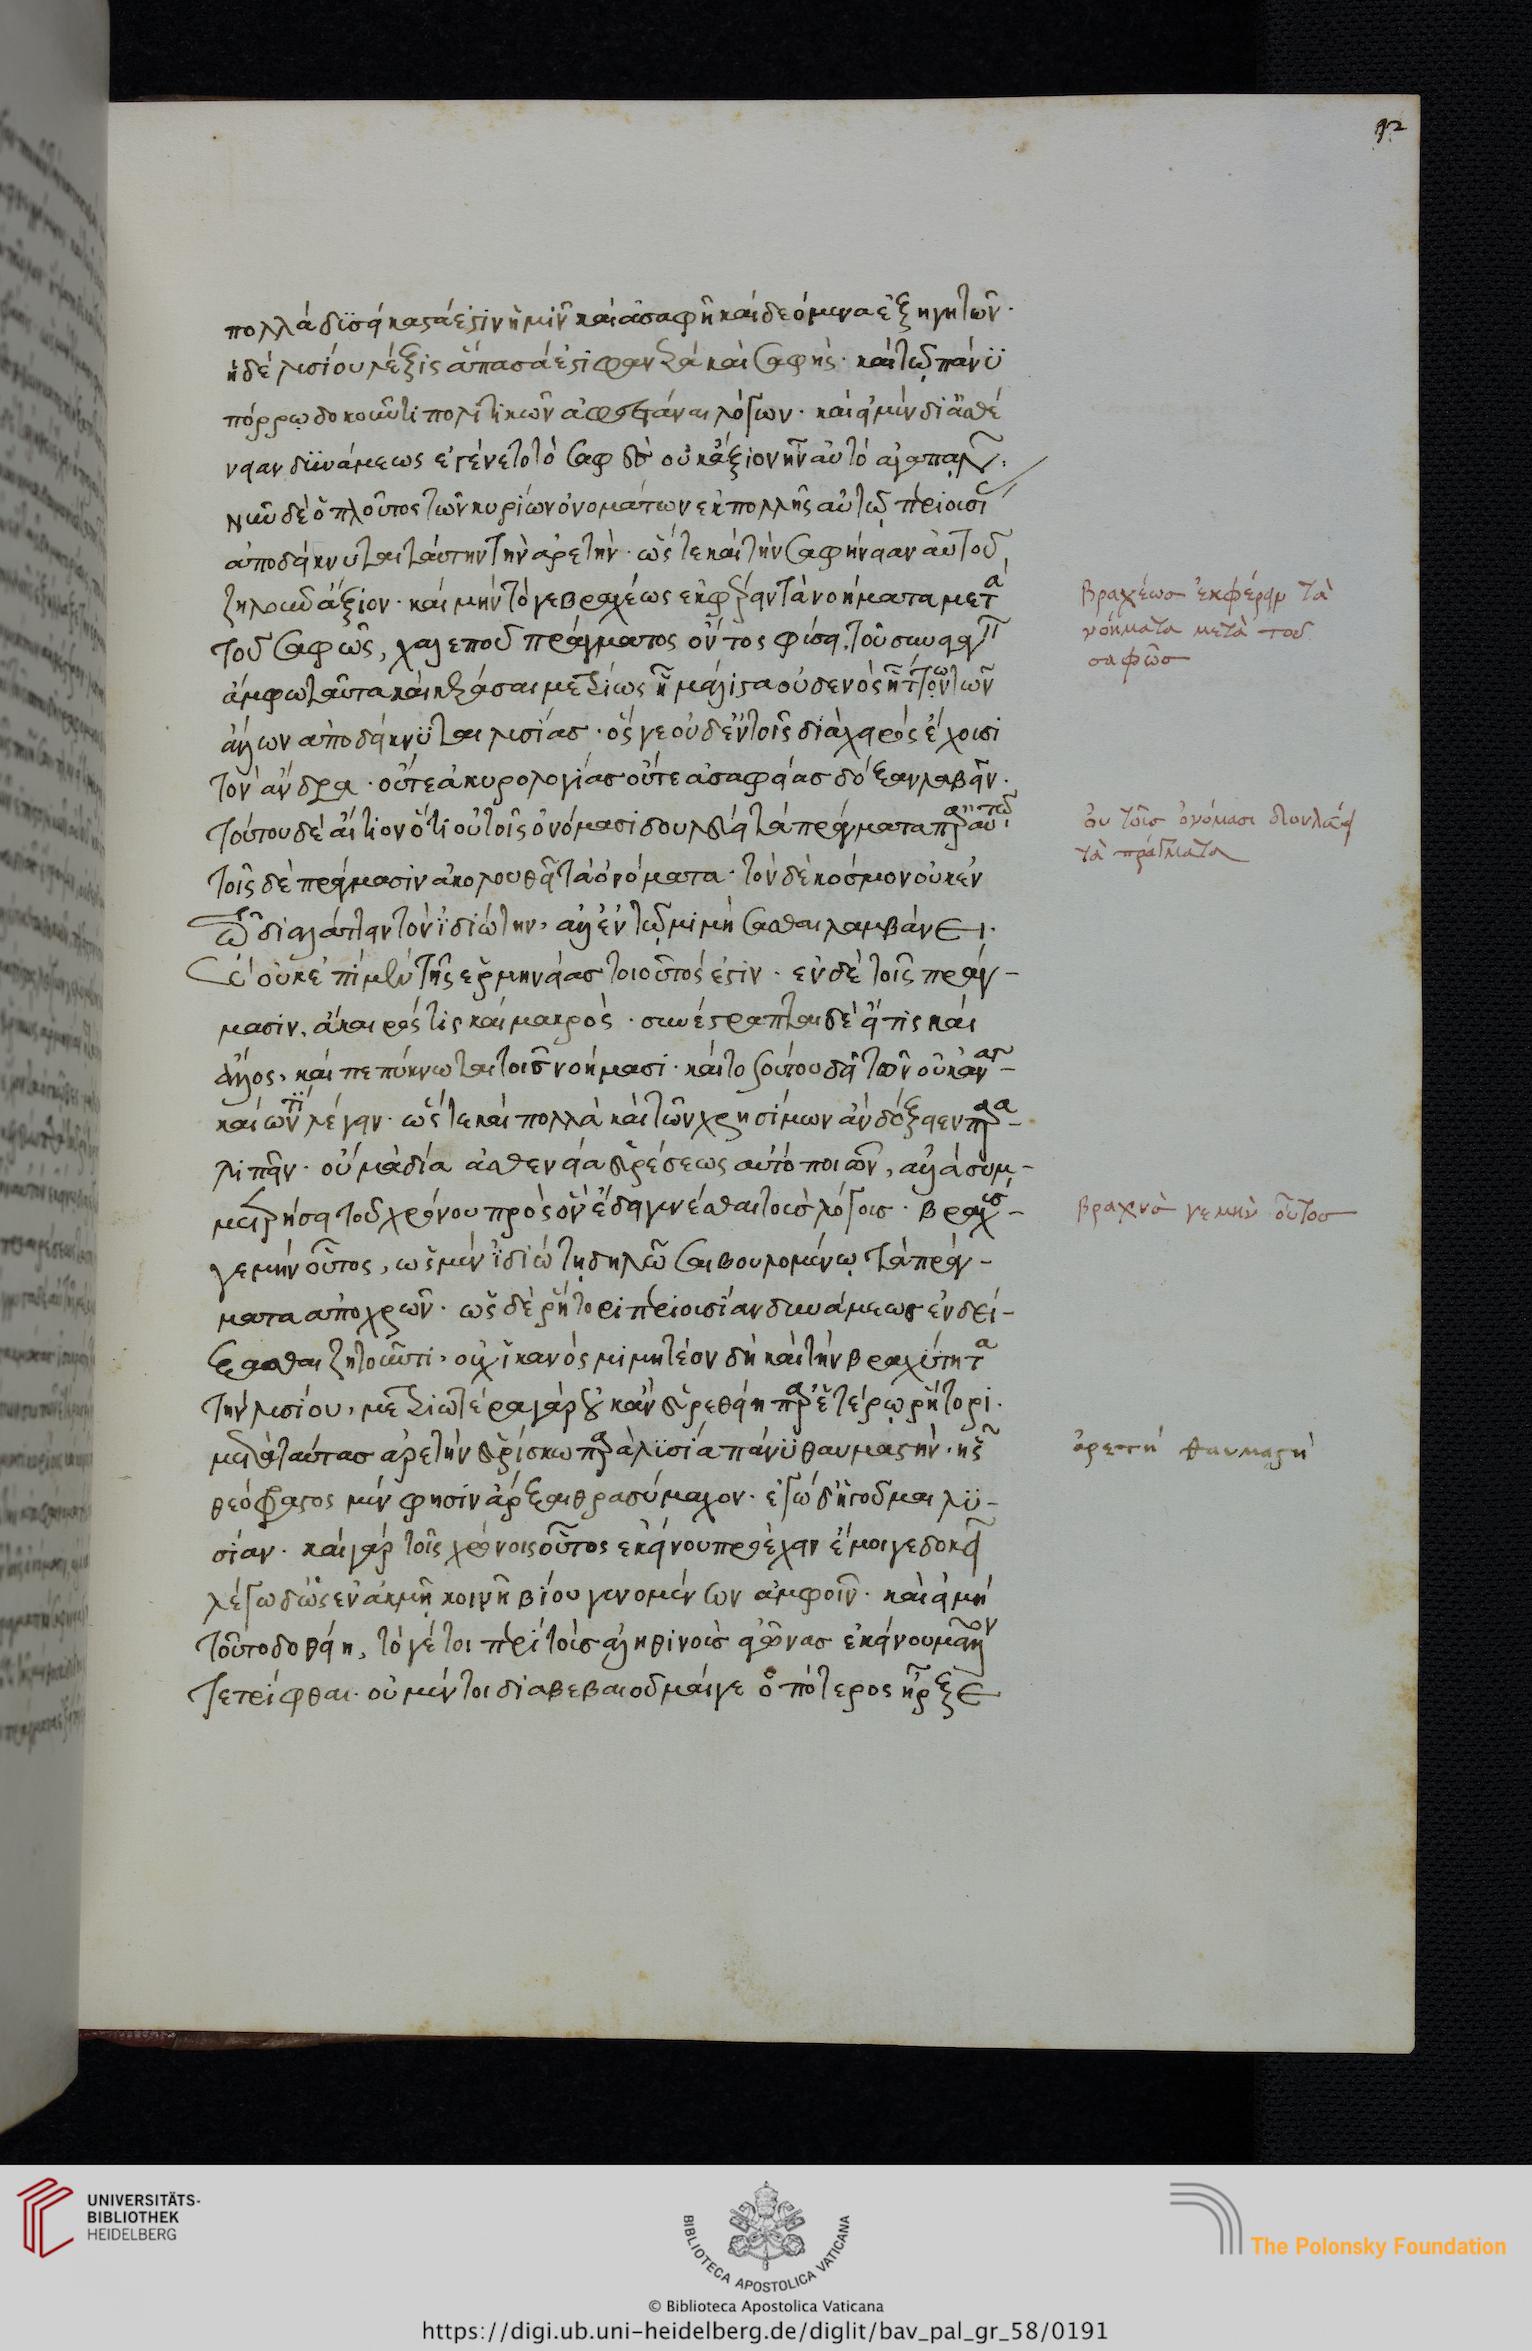 92
πολλὰ δυσείκαστά ἐστιν ἡμῖν καὶ ἀσαφῆ καὶ δεόμενα ἐξηγητῶν·
ἡ δὲ λυσίου λέξις ἅπασά ἐστι φανερὰ καὶ σαφής· καὶ τῷ πάνυ
πόρρω δοκοῦντι πολιτικῶν ἀφεστάναι λόγων· καὶ εἰ μὲν δι ἀσθέ
νειαν δυνάμεως ἐγένετο τὸ σαφὲς οὐκ ἄξιον ἦν αὐτὸ ἀγαπᾶν·
νῦν δὲ ὁ πλοῦτος τῶν κυρίων ὀνομάτων ἐκ πολλῆς αὐτῷ περιουσί
ἀποδείκνυται ταύτην τὴν ἀρετήν· ὥστε καὶ τὴν σαφήνειαν αὐτοῦ
ζηλοῦν ἄξιον· καὶ μὴν τό γε βραχέως ἐκφέρειν τὰ νοήματα μετὰ
τοῦ σαφῶς, χαλεποῦ πράγματος ὄντος φύσει, τοῦ συναγαγ
ἄμφω ταῦτα καὶ κεράσαι μετρίως ᾗ μάλιστα οὐδενὸς ἧττον τῶν
ἄλλων ἀποδείκνυται λυσίας· ὅς γε οὐδὲν τοῖς διὰ χειρὸς ἔχουσι
τὸν ἄνδρα· οὔτε ἀκυρολογίας οὔτε ἀσαφείας δόξαν λαβεῖν·
τούτου δὲ αἴτιον ὅτι οὐ τοῖς ὀνόμασι δουλεύει τὰ πράγματα παρ αὐτῷ
τοῖς δὲ πράγμασιν ἀκολουθεῖ τὰ ὀνόματα· τὸν δὲ κόσμον οὐκ ἐν
τῷ διαλάττειν τὸν ἰδιώτην, ἀλλ ἐν τῷ μιμήσασθαι λαμβάνει·
καὶ οὐκ ἐπὶ μὲν τῆς ἑρμηνείας τοιοῦτός ἐστιν· ἐν δὲ τοῖς πράγ-
μασιν, ἄκαιρός τις καὶ μακρός· συνέστραπται δὲ εἴ τις καὶ
ἄλλος, καὶ πεπύκνωται τοῖς νοήμασι· καὶ τοσούτου δεῖ τῶν οὐκ ἀναγ-
καίων τι λέγειν· ὥστε καὶ πολλὰ καὶ τῶν χρησίμων ἂν δόξειεν παρα-
λιπεῖν· οὐ μὰ δία ἀσθενείᾳ εὑρέσεως αὐτὸ ποιῶν, ἀλλὰ συμ-
μετρήσει τοῦ χρόνου πρὸς ὃν ἔδει γενέσθαι τοὺς λόγους· βραχὺς-
γε μὴν οὗτος, ὡς μὲν ἰδιώτῃ δηλῶσαι βουλομένῳ τὰ πράγ-
ματα ἀποχρῶν· ὡς δὲ ῥήτορι περιουσίαν δυνάμεως ἐνδεί-
ξασθαι ζητοῦντι, οὐχ ἱκανὸς μιμητέον δὴ καὶ τὴν βραχύτητα
τὴν λυσίου, μετριωτέρα γὰρ οὐκ ἂν εὑρεθείη παρ ἑτέρῳ ῥήτορι·
μετὰ ταύτας ἀρετὴν εὑρίσκω παρὰ λυσίᾳ πάνυ θαυμαστήν· ἧς
θεόφραστος μέν φησιν ἄρξαι θρασύμαχον· ἐγὼ δ ἡγοῦμαι λυ-
σίαν· καὶ γὰρ τοῖς χρόνοις οὗτος ἐκείνου προέχειν ἔμοιγε δοκεῖ
λέγω δ ὡς ἐν ἀκμῇ κοινῇ βίου γενομένων ἀμφοῖν· καὶ εἰ μὴ
τοῦτο δοθείη, τό γέ τοι περὶ τοὺς ἀληθινοὺς ἀγῶνας ἐκείνου μᾶλλον
τετρίφθαι· οὐ μέντοι διαβεβαιοῦμαί γε ὁπότερος ἦρξε
βραχέως ἐκφέρειν τὰ
νοήματα μετὰ τοῦ
σαφῶς
οὐ τοῖς ὀνόμασι δουλεύει
τὰ πράγματα
βραχὺς γε μὴν οὗτος
ἀρετή θαυμαστή
UNIVERSITÄTS-
BIBLIOTHEK
HEIDELBERG
BIBLIOTECA APOSTOLICA VATICANA
The Polonsky Foundation
© Biblioteca Apostolica Vaticana
https://digi.ub.uni-heidelberg.de/diglit/bav_pal_gr_58/0191